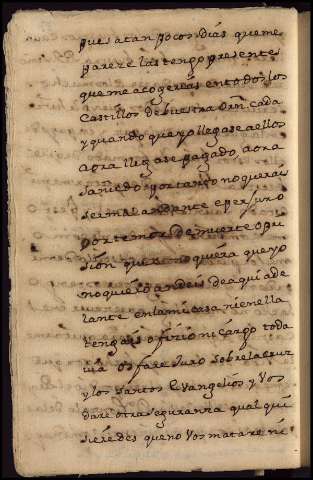 pues a tan pocos dias que me
parece las tengo presentes
que me acogereis en todos los
Castillos de vuestra Orn cada
y quando que yo llegase a ellos
aora llegase pagado, aora
sañudo portanto no querais
ser mal andante e perjuro
por temor de muerte o pri
sion que si no quiera que yo
no quiero andeis de aqui ade
lante en la mi casa ni en ella
tengais oficio ni cargo toda
via os fare Juro sobre la cruz
y los Santos Evangelios y Vos
dare otra seguranza qual qui
sieredes que no Vos matare ni